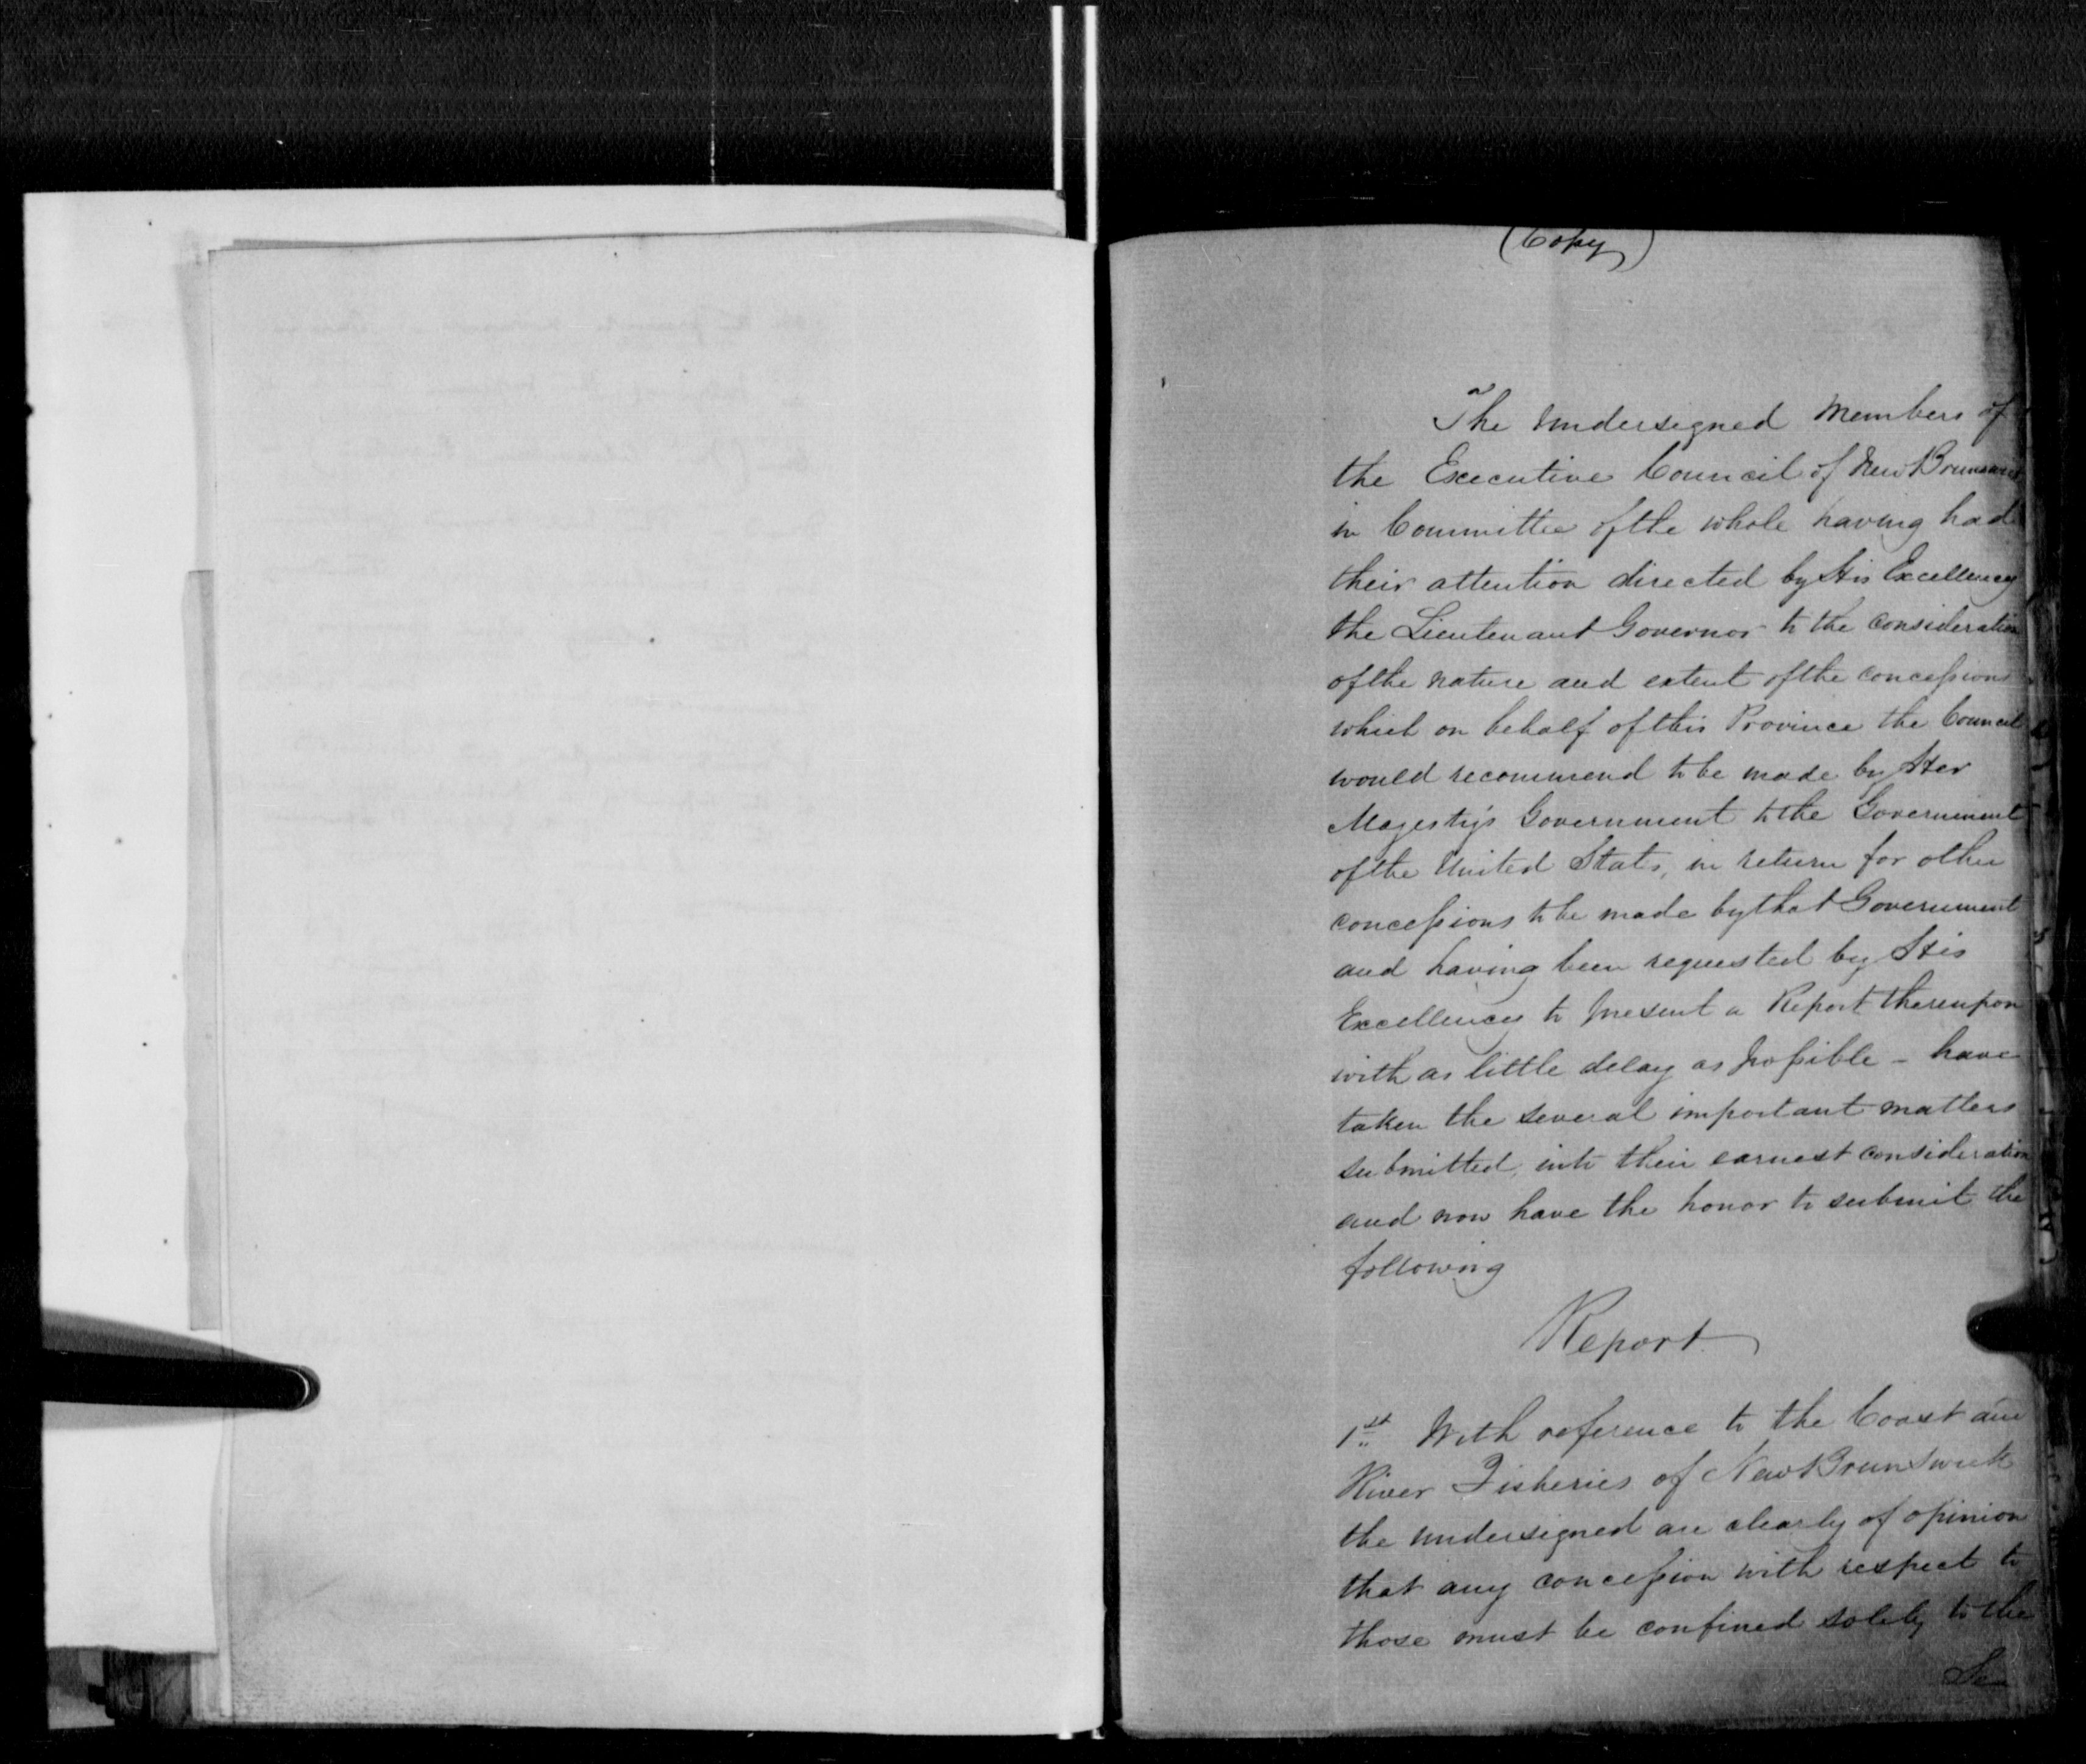 (Copy)
The undersigned Members of
the Executive Council of New Brunswick
in Committee of the whole having had
their attention directed by His Excellency
the Lieutenant Governor to the consideration
of the nature and extent of the concessions
which on behalf of this Province the Council
would recommend to be made by Her
Majesty's Government to the Government
of the United States, in return for other
concessions to be made by that Government
and having been requested by His
Excellency to present a Report thereupon
with as little delay as possible - have
taken the several important matters
submitted, into their earnest consideration
and now have the honor to submit the
following
Report
1st With reference to the Coast and
River Fisheries of New Brunswick
the undersigned are clearly of opinion
that any concession with respect to
those must be confined solely to the